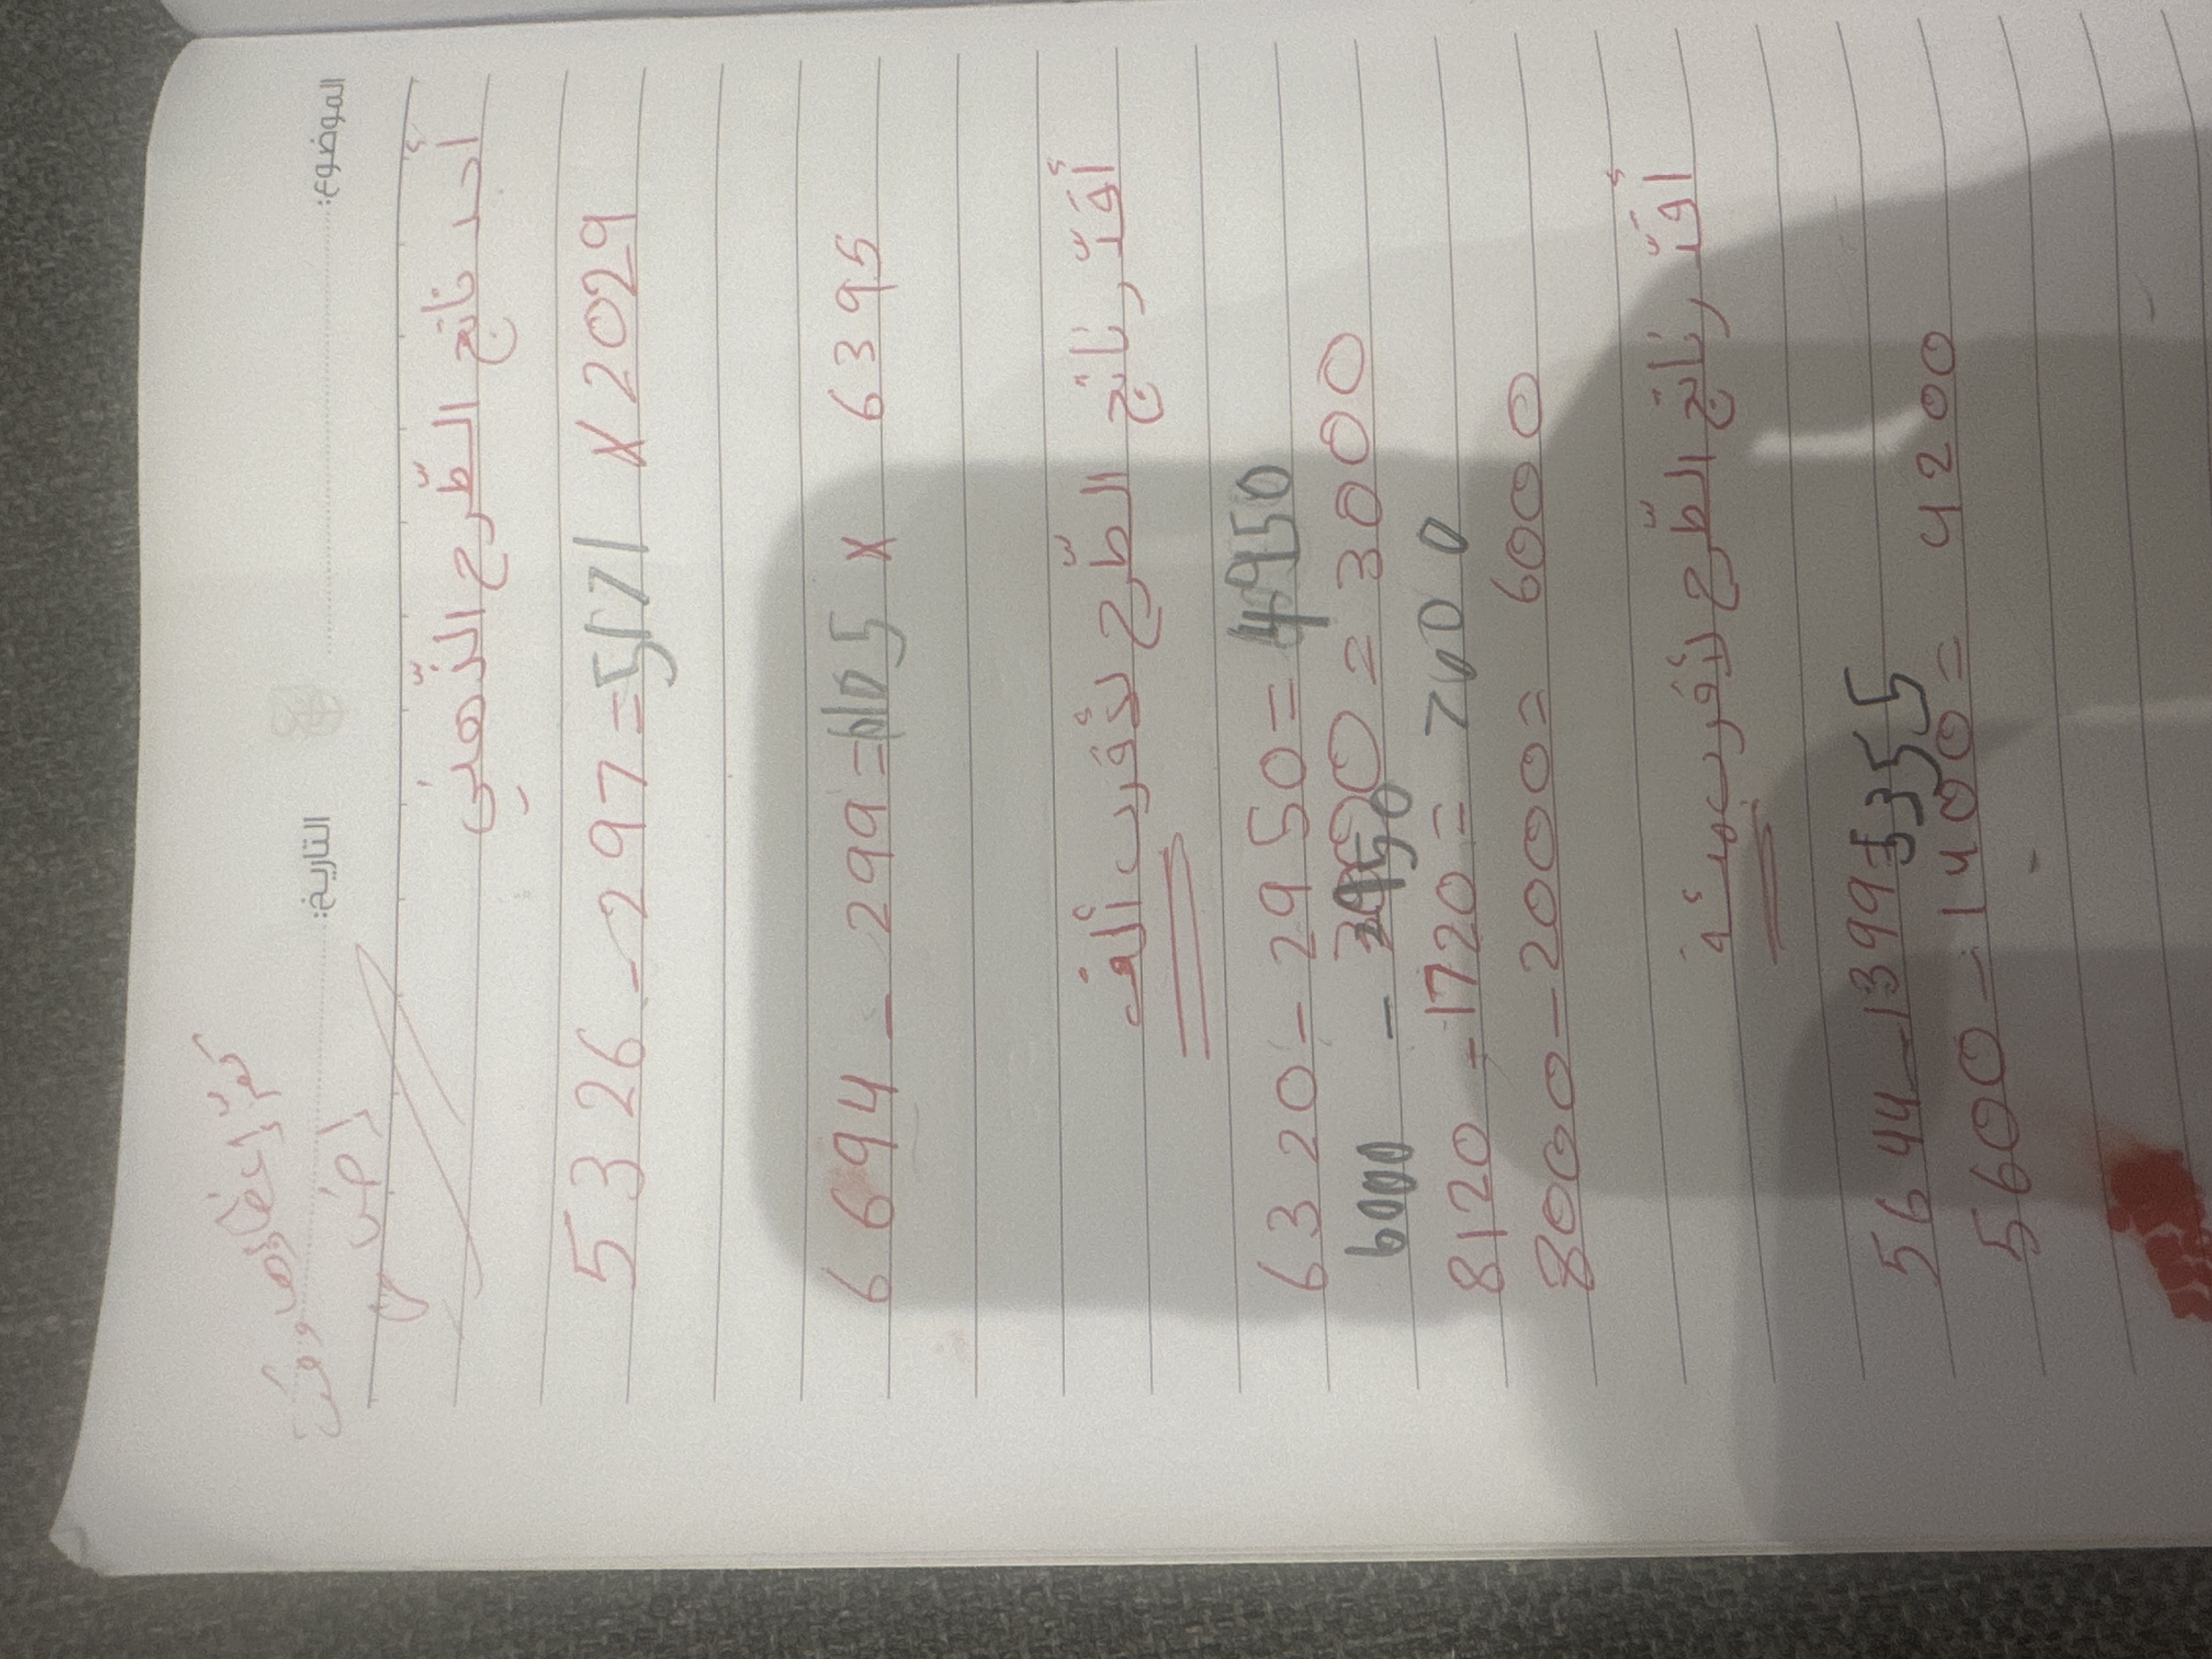 ركّز أعطي وقت
الموضوع: التاريخ:
أجد ناتج الطّرح الذّهني
5326 - 297 = 5171 X 2029
6694 - 299 = 6105 X 6395
أقدّر ناتج الطّرح لأقرب ألف
6320 - 2950 = 4950
6000 - 3000 = 3000
8120 - 1720 = 7000
8000 - 2000 = 6000
أقدّر ناتج الطّرح لأقرب مئة
5644 - 1399 = 5355
5600 - 1400 = 4200